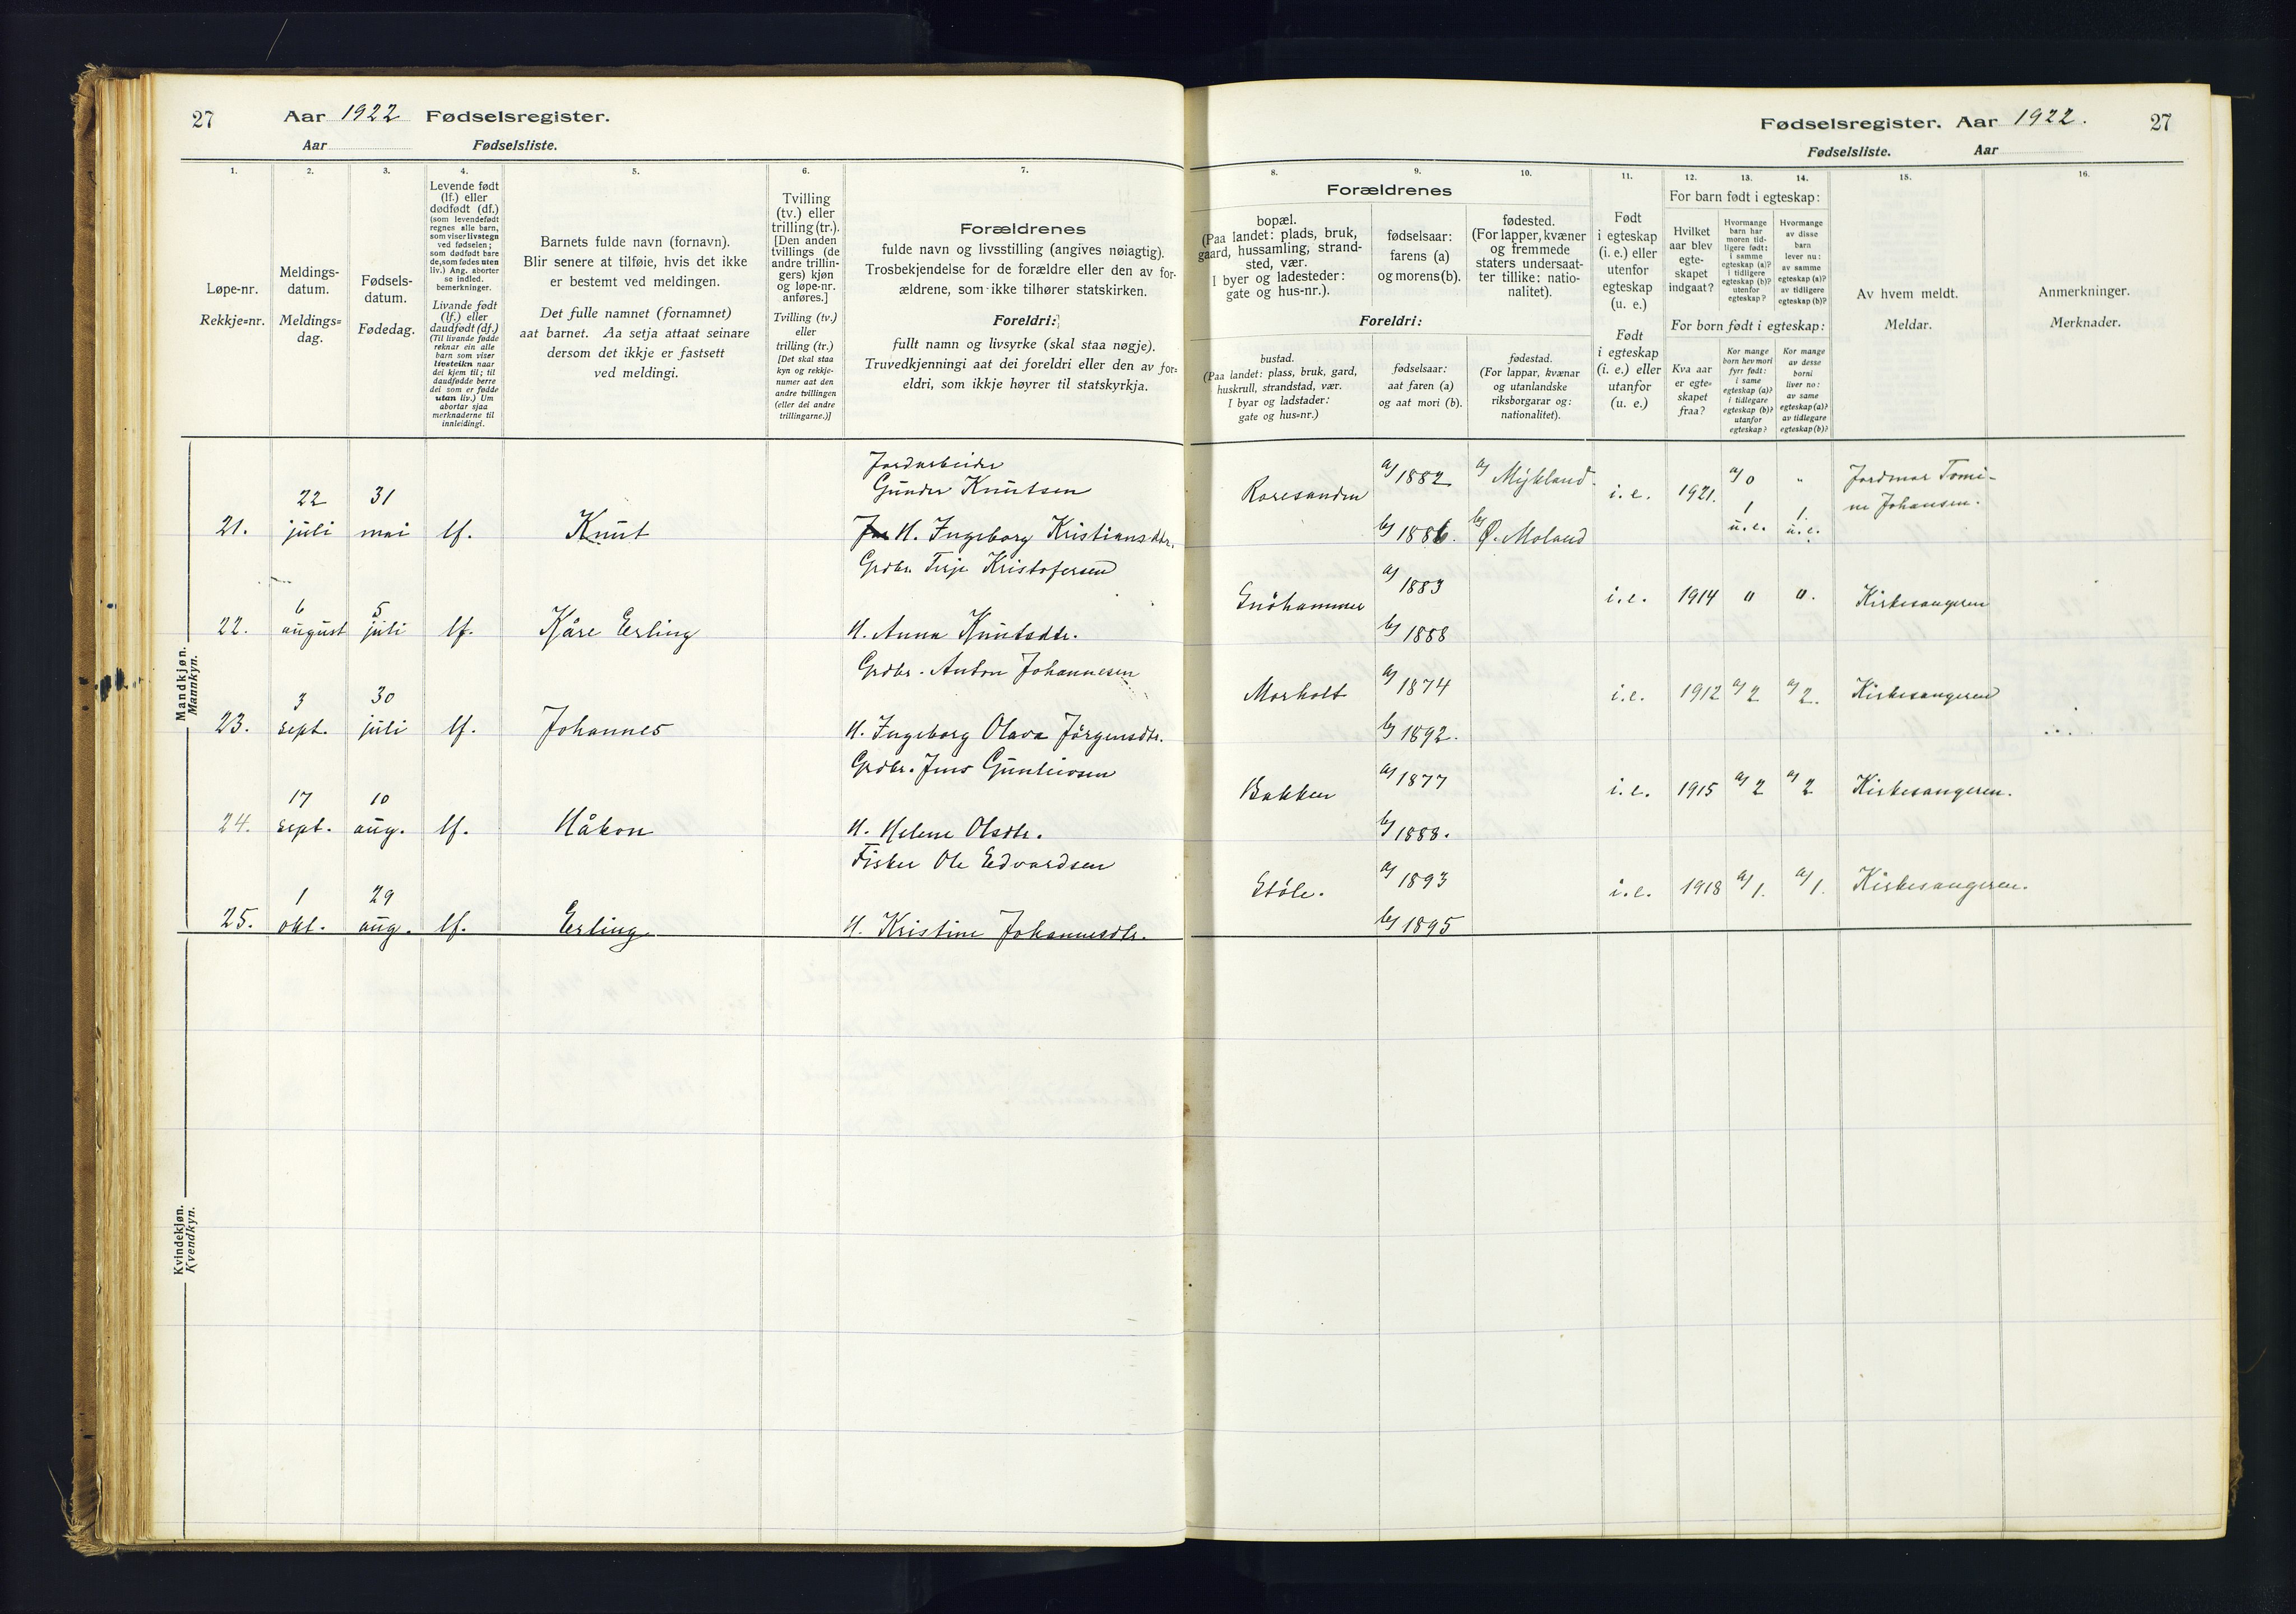 27 Aar 1922 Fødselsregister.
Aar Fødselsliste.
1.
Løpe-nr.
Rekkje=nr.
2.
Meldings-
datum.
Meldings=
dag.
3.
Fødsels-
datum.
Fødedag.
4.
Levende født
(lf.) eller
dødfødt (df.)
(som levendefødt
regnes alle barn,
som viser livstegn
ved fødselen;
som dødfødt bare
de, som fødes uten
liv.) Ang. aborter
se indled.
bemerkninger.
Livande født
(lf.) eller
daudfødt (df.)
(Til livande fødde
reknar ein alle
barn som viser
livsteikn naar
dei kjem til; til
daudfødde berre
dei som er fødde
utan liv.) Um
abortar sjaa
merknaderne til
innleidingi.
5.
Barnets fulde navn (fornavn).
Blir senere at tilføie, hvis det ikke
er bestemt ved meldingen.
Det fulle namnet (fornamnet)
aat barnet. Aa setja attaat seinare
dersom det ikkje er fastsett
ved meldingi.
6.
Tvilling
(tv.) eller
trilling (tr.).
[Den anden
tvillings (de
andre trillin-
gers) kjøn
og løpe-nr.
anføres.]
Tvilling (tv.)
eller
trilling (tr.)
[Det skal staa
kyn og rekkje-
numer aat den
andre tvillingen
(eller dei andre
trillingarne.)]
7.
Forældrenes
fulde navn og livsstilling (angives nøiagtig).
Trosbekjendelse for de forældre eller den av for-
ældrene, som ikke tilhører statskirken.
Foreldri:
fullt namn og livsyrke (skal staa nøgje).
Truvedkjenningi aat dei foreldri eller den av for=
eldri, som ikkje høyrer til statskyrkja.
Mandkjøn.
Mannkyn.
Jordarbeider
22 31 Gunder Knutsen
21. juli mai lf. Knut H. Ingeborg Kristiansdtr.
Grdbr. Terje Kristofersen
6 5
22. august juli lf. Kåre Erling H. Anna Knutsdtr.
Grdbr. Anton Johannesen
3 30
23. sept. juli lf. Johannes H. Ingeborg Olava Jörgensdtr.
Grdbr. Jens Gunleivsen
17 10
24. sept. aug. lf. Håkon H. Helene Olsdtr.
Fisker Ole Edvardsen
1 29
25. okt. aug. lf. Erling H. Kristine Johannesdtr.
Kvindekjøn.
Kvendkyn.
Fødselsregister. Aar 1922. 27
Fødselsliste. Aar
8. 9. 10.
Forældrenes
bopæl.
(Paa landet: plads, bruk,
gaard, hussamling, strand-
sted, vær.
I byer og ladesteder:
gate og hus-nr.).
fødselsaar:
farens (a)
og morens (b).
fødested.
(For lapper, kvæner
og fremmede
staters undersaat-
ter tillike: natio-
nalitet).
Foreldri:
bustad.
(Paa landet: plass, bruk, gard,
huskrull, strandstad, vær.
I byar og ladstader:
gate og hus=nr.)
fødselsaar:
aat faren (a)
og aat mori (b).
fødestad.
(For lappar, kvænar
og utanlandske
riksborgarar og:
nationalitet).
11.
Født
i egteskap
(i. e.) eller
utenfor
egteskap
(u. e.)
Født
i egteskap
(i. e.) eller
utanfor
(u. e.)
12. 13. 14.
For barn født i egteskap:
Hvilket
aar blev
egte-
skapet
indgaat?
Hvormange
barn har
moren tid-
ligere født:
i samme
egteskap (a)?
i tidligere
egteskap (b)?
utenfor
egteskap?
Hvormange
av disse
barn
lever nu:
av samme
egteskap (a)?
av tidligere
egteskap (b)?
For born født i egteskap:
Kva aar
er egte=
skapet
fraa?
Kor mange
born hev mori
fyrr født:
i same
egteskap (a)?
i tidlegare
egteskap (b)?
utanfor
egteskap?
Kor mange
av desse
borni
liver no:
av same
egteskap (a)?
av tidlegare
egteskap (b)?
15.
Av hvem meldt.
Meldar.
16.
Anmerkninger.
Merknader.
Roresanden a) 1882 a) Mykland. i.e. 1921. a/0 " Jordmor Tomi-
ne Johansen.
b) 1886. b) Ø. Moland 1 u.e. 1. u.e.
a) 1883 i.e. 1914 " ". Kirkesangeren
b) 1888
Morholt a) 1874 i.e. 1912 a/2 a/2. Kirkesangeren
b) 1892.
Bakken a) 1877 i.e. 1915 a/2 a/2 Kirkesangeren.
b) 1888.
Støle. a) 1893 i.e. 1918 a/1. a/1. Kirkesangeren.
b) 1895